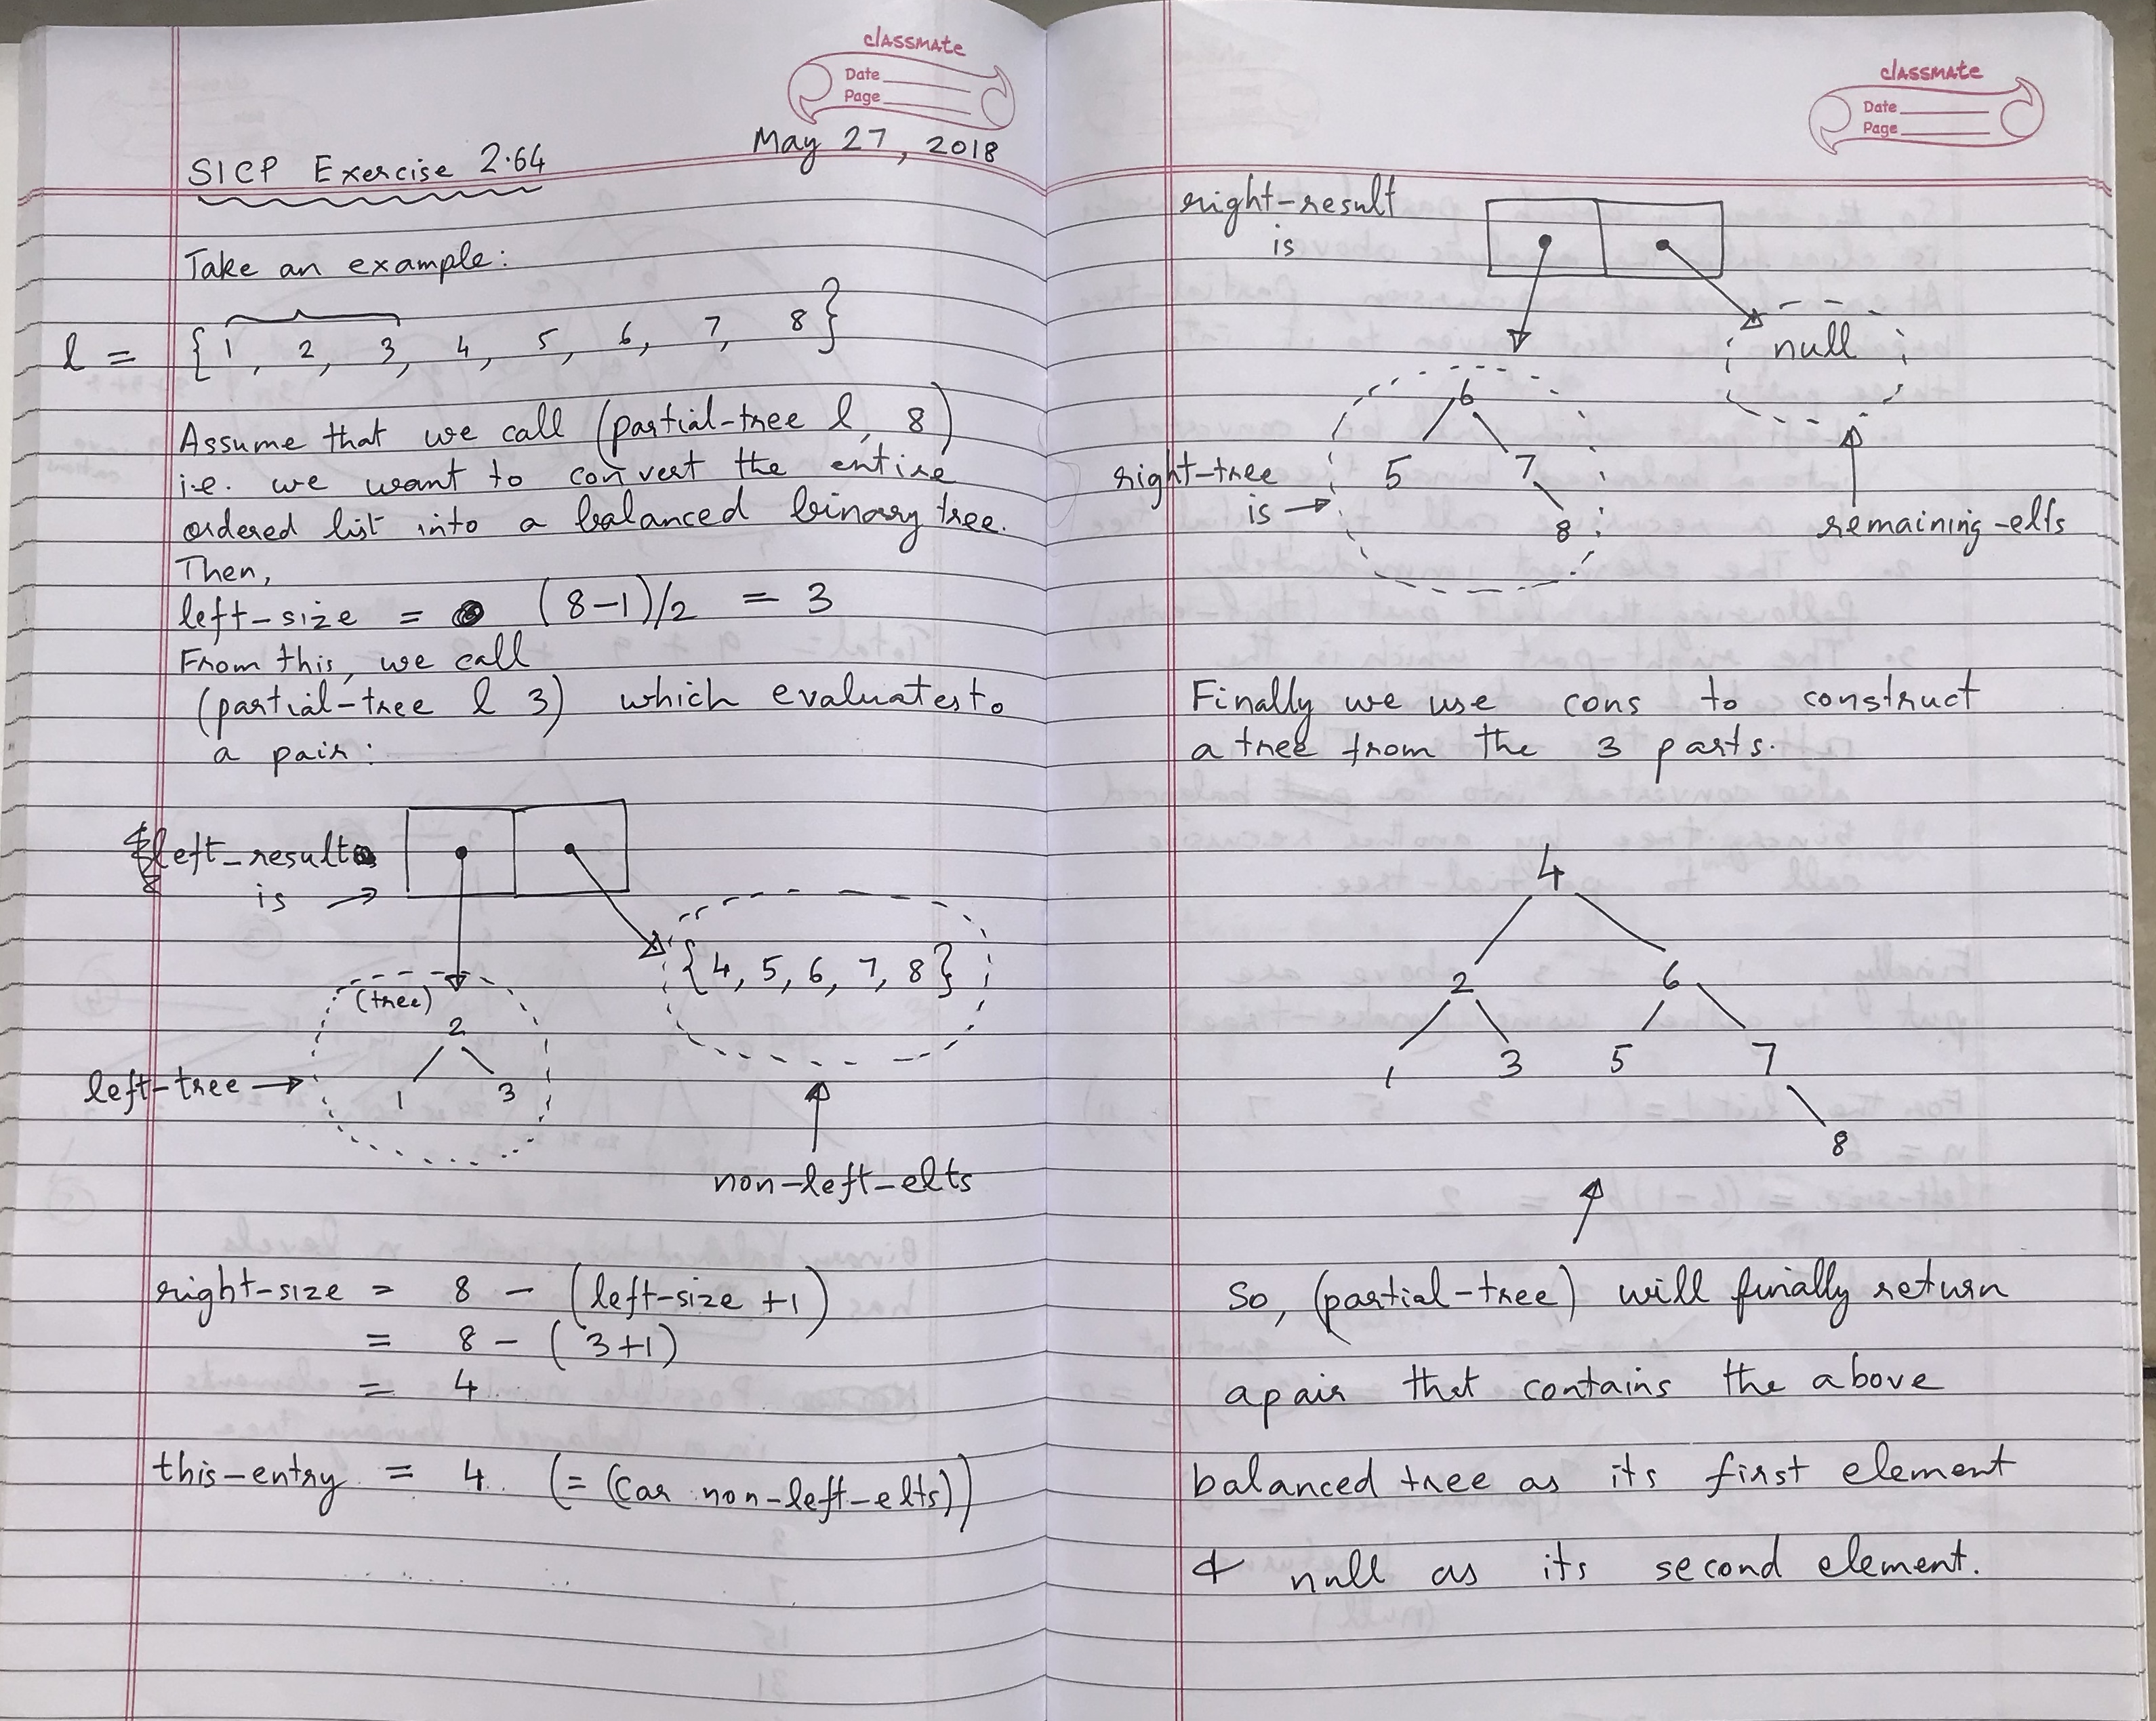 classmate
Date
Page
May 27, 2018
SICP Exercise 2.64
Take an example:
l = { 1, 2, 3, 4, 5, 6, 7, 8 }
Assume that we call (partial-tree l, 8)
i.e. we want to convert the entire
ordered list into a balanced binary tree.
Then,
left-size = (8-1)/2 = 3
From this, we call
(partial-tree l 3) which evaluates to
a pair:
left-result
is →
{4, 5, 6, 7, 8}
(tree)
2
left-tree →
1 3
non-left-elts
right-size = 8 - (left-size +1)
= 8 - (3+1)
= 4
this-entry = 4 (= (car non-left-elts))
classmate
Date
Page
right-result
is
null
6
right-tree
is →
5 7
8
remaining-elts
Finally we use cons to construct
a tree from the 3 parts.
4
2 6
1 3 5 7
8
So, (partial-tree) will finally return
a pair that contains the above
balanced tree as its first element
& null as its second element.